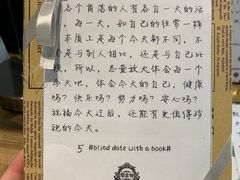 各个角落的人有各自一天的活
,每一天,如自己的往常一样
本质上是每个今天都不同,不
是与别人相比,还是与自己比
较,所以,尽量放大体会每一个
今天吧,体会今天的自己,健康
吗?快乐吗?努力吗?安心吗?
祝福今天过后,还能有更值得珍
视的今天。
5 #blind date with a book#